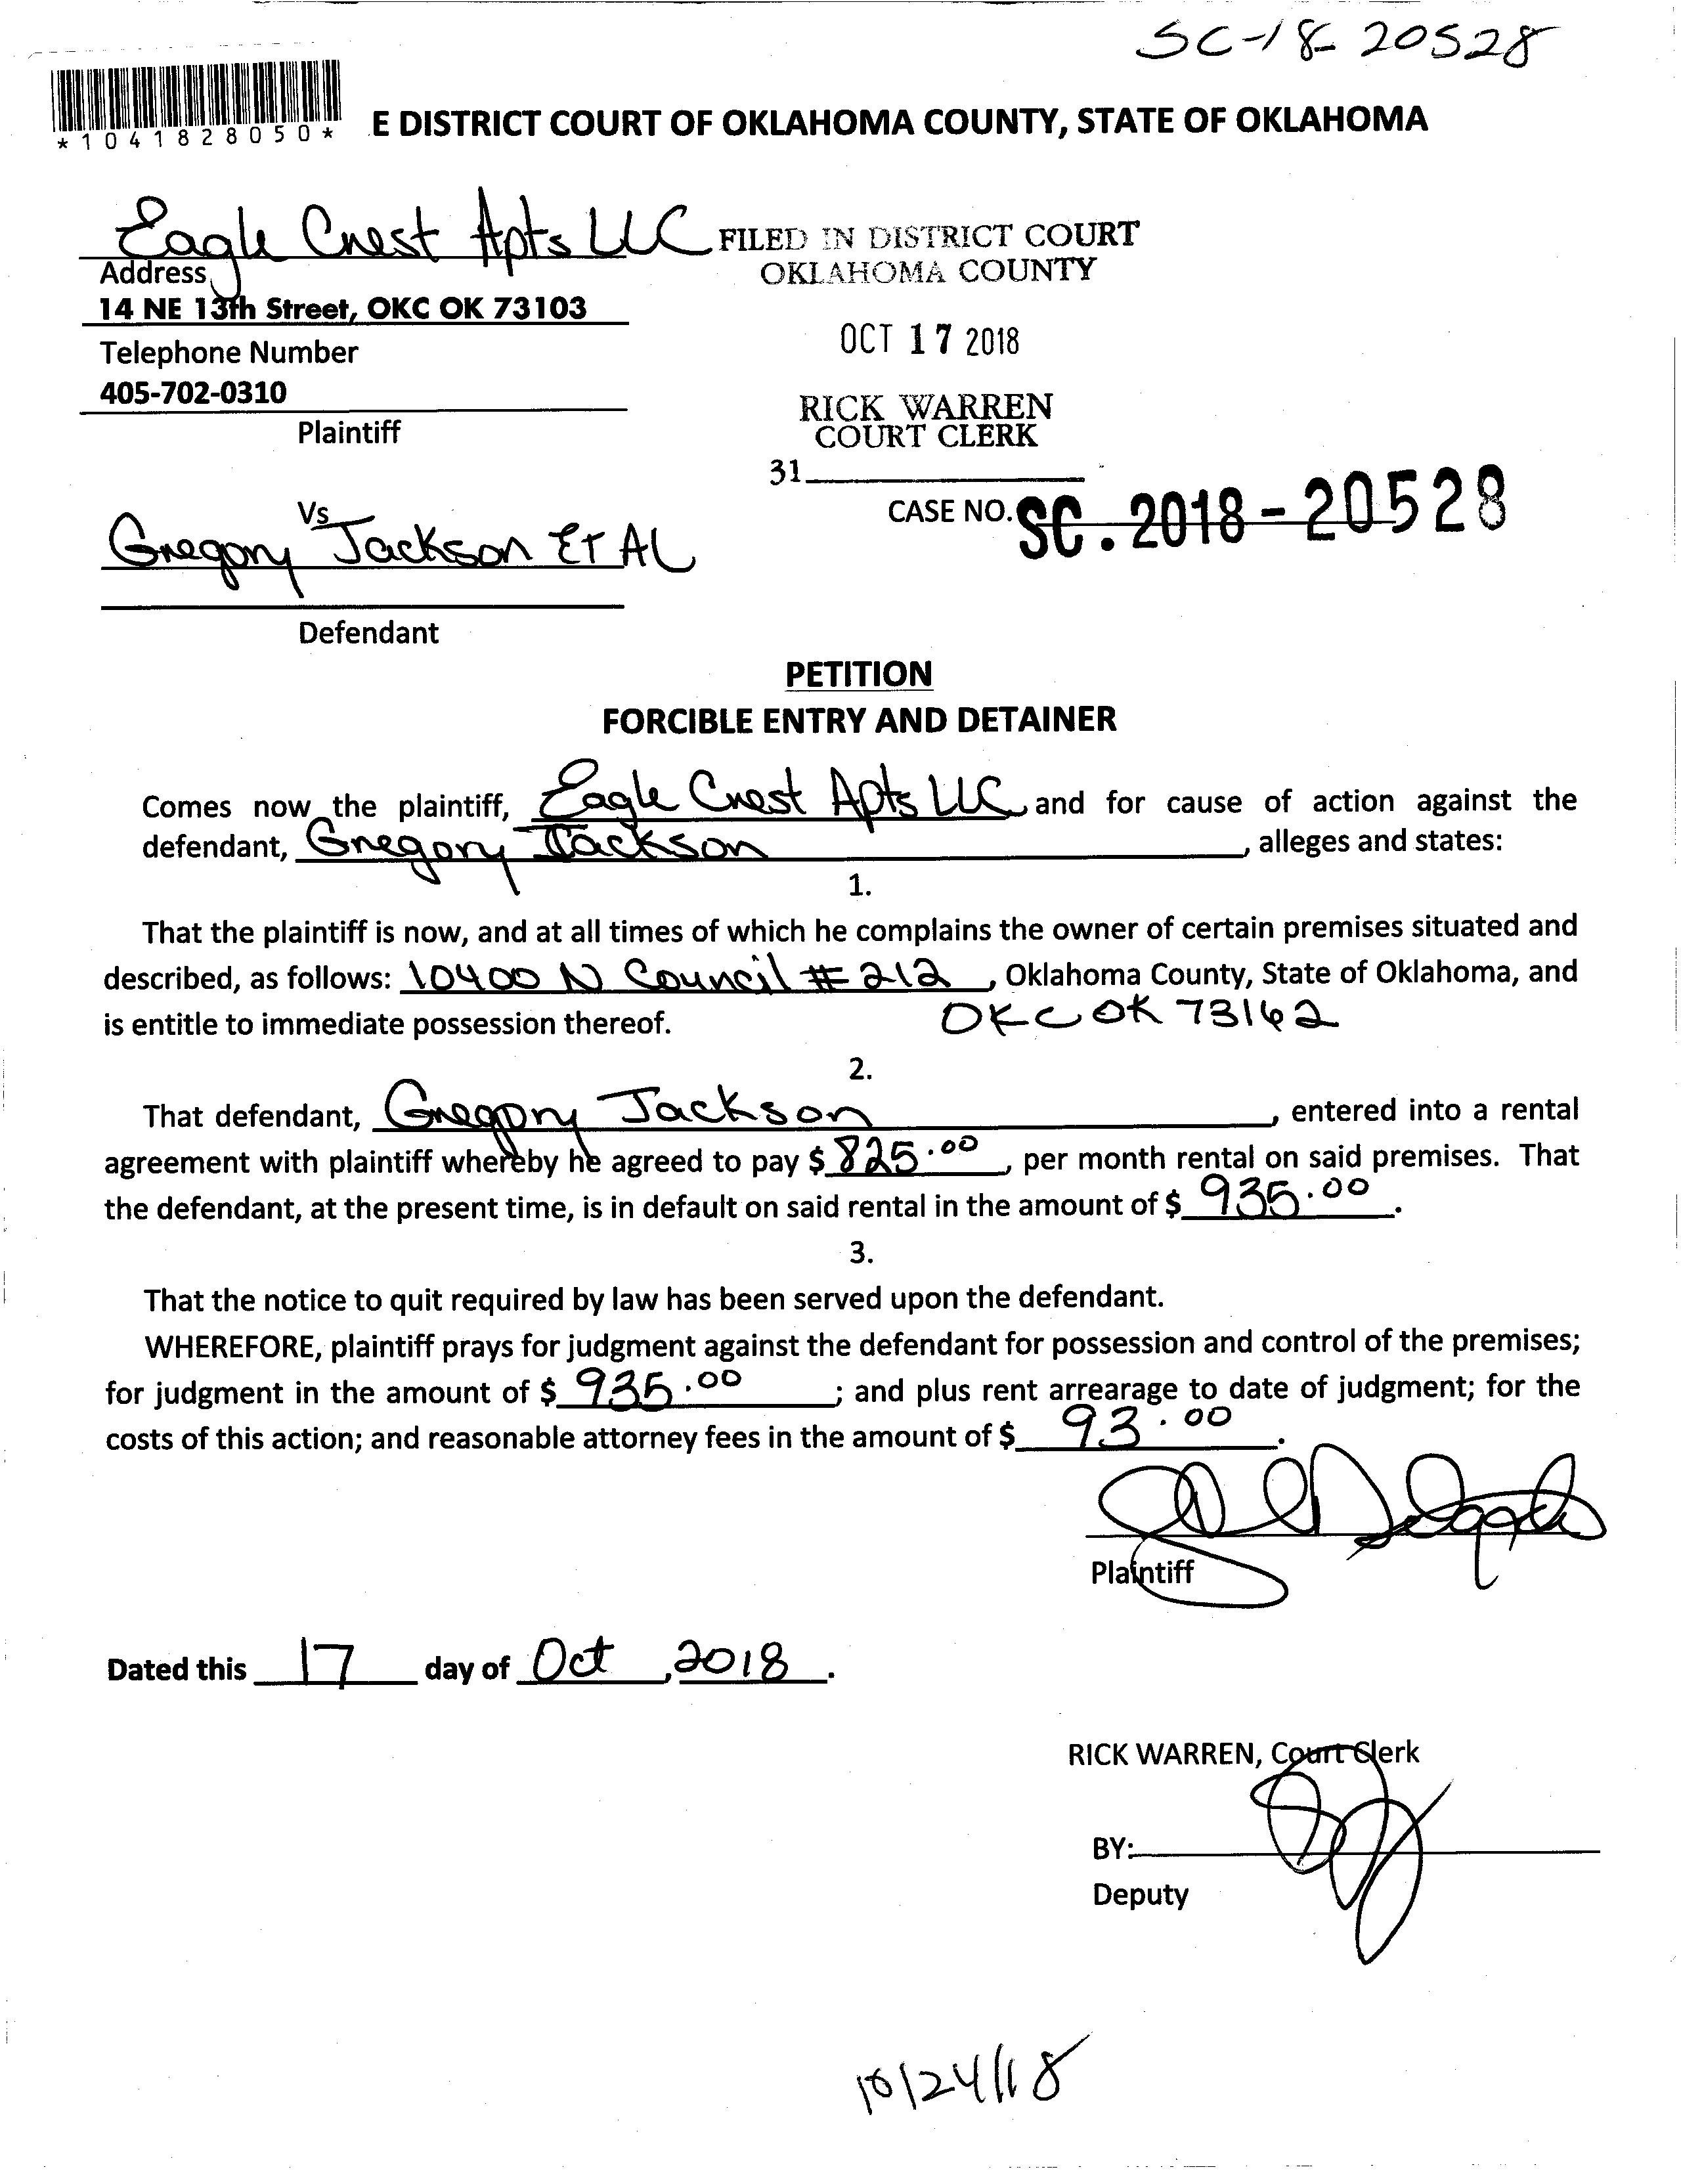 SC-18-20528
*1041828050*
E DISTRICT COURT OF OKLAHOMA COUNTY, STATE OF OKLAHOMA
Eagle Crest Apts LLC
Address
14 NE 13th Street, OKC OK 73103
Telephone Number
405-702-0310
Plaintiff
FILED IN DISTRICT COURT
OKLAHOMA COUNTY
OCT 17 2018
RICK WARREN
COURT CLERK
31
Vs
Gregory Jackson Et AL
Defendant
CASE NO. SC. 2018-20528
PETITION
FORCIBLE ENTRY AND DETAINER
Comes now the plaintiff, Eagle Crest Apts LLC and for cause of action against the
defendant, Gregory Jackson, alleges and states:
1.
That the plaintiff is now, and at all times of which he complains the owner of certain premises situated and
described, as follows: 10400 N Council # 212, Oklahoma County, State of Oklahoma, and
is entitle to immediate possession thereof. OKC OK 73162
2.
That defendant, Gregory Jackson, entered into a rental
agreement with plaintiff whereby he agreed to pay $ 825.00, per month rental on said premises. That
the defendant, at the present time, is in default on said rental in the amount of $ 935.00.
3.
That the notice to quit required by law has been served upon the defendant.
WHEREFORE, plaintiff prays for judgment against the defendant for possession and control of the premises;
for judgment in the amount of $ 935.00; and plus rent arrearage to date of judgment; for the
costs of this action; and reasonable attorney fees in the amount of $ 93.00.
Plaintiff
Dated this 17 day of Oct, 2018.
RICK WARREN, Court Clerk
BY:
Deputy
10/24/18